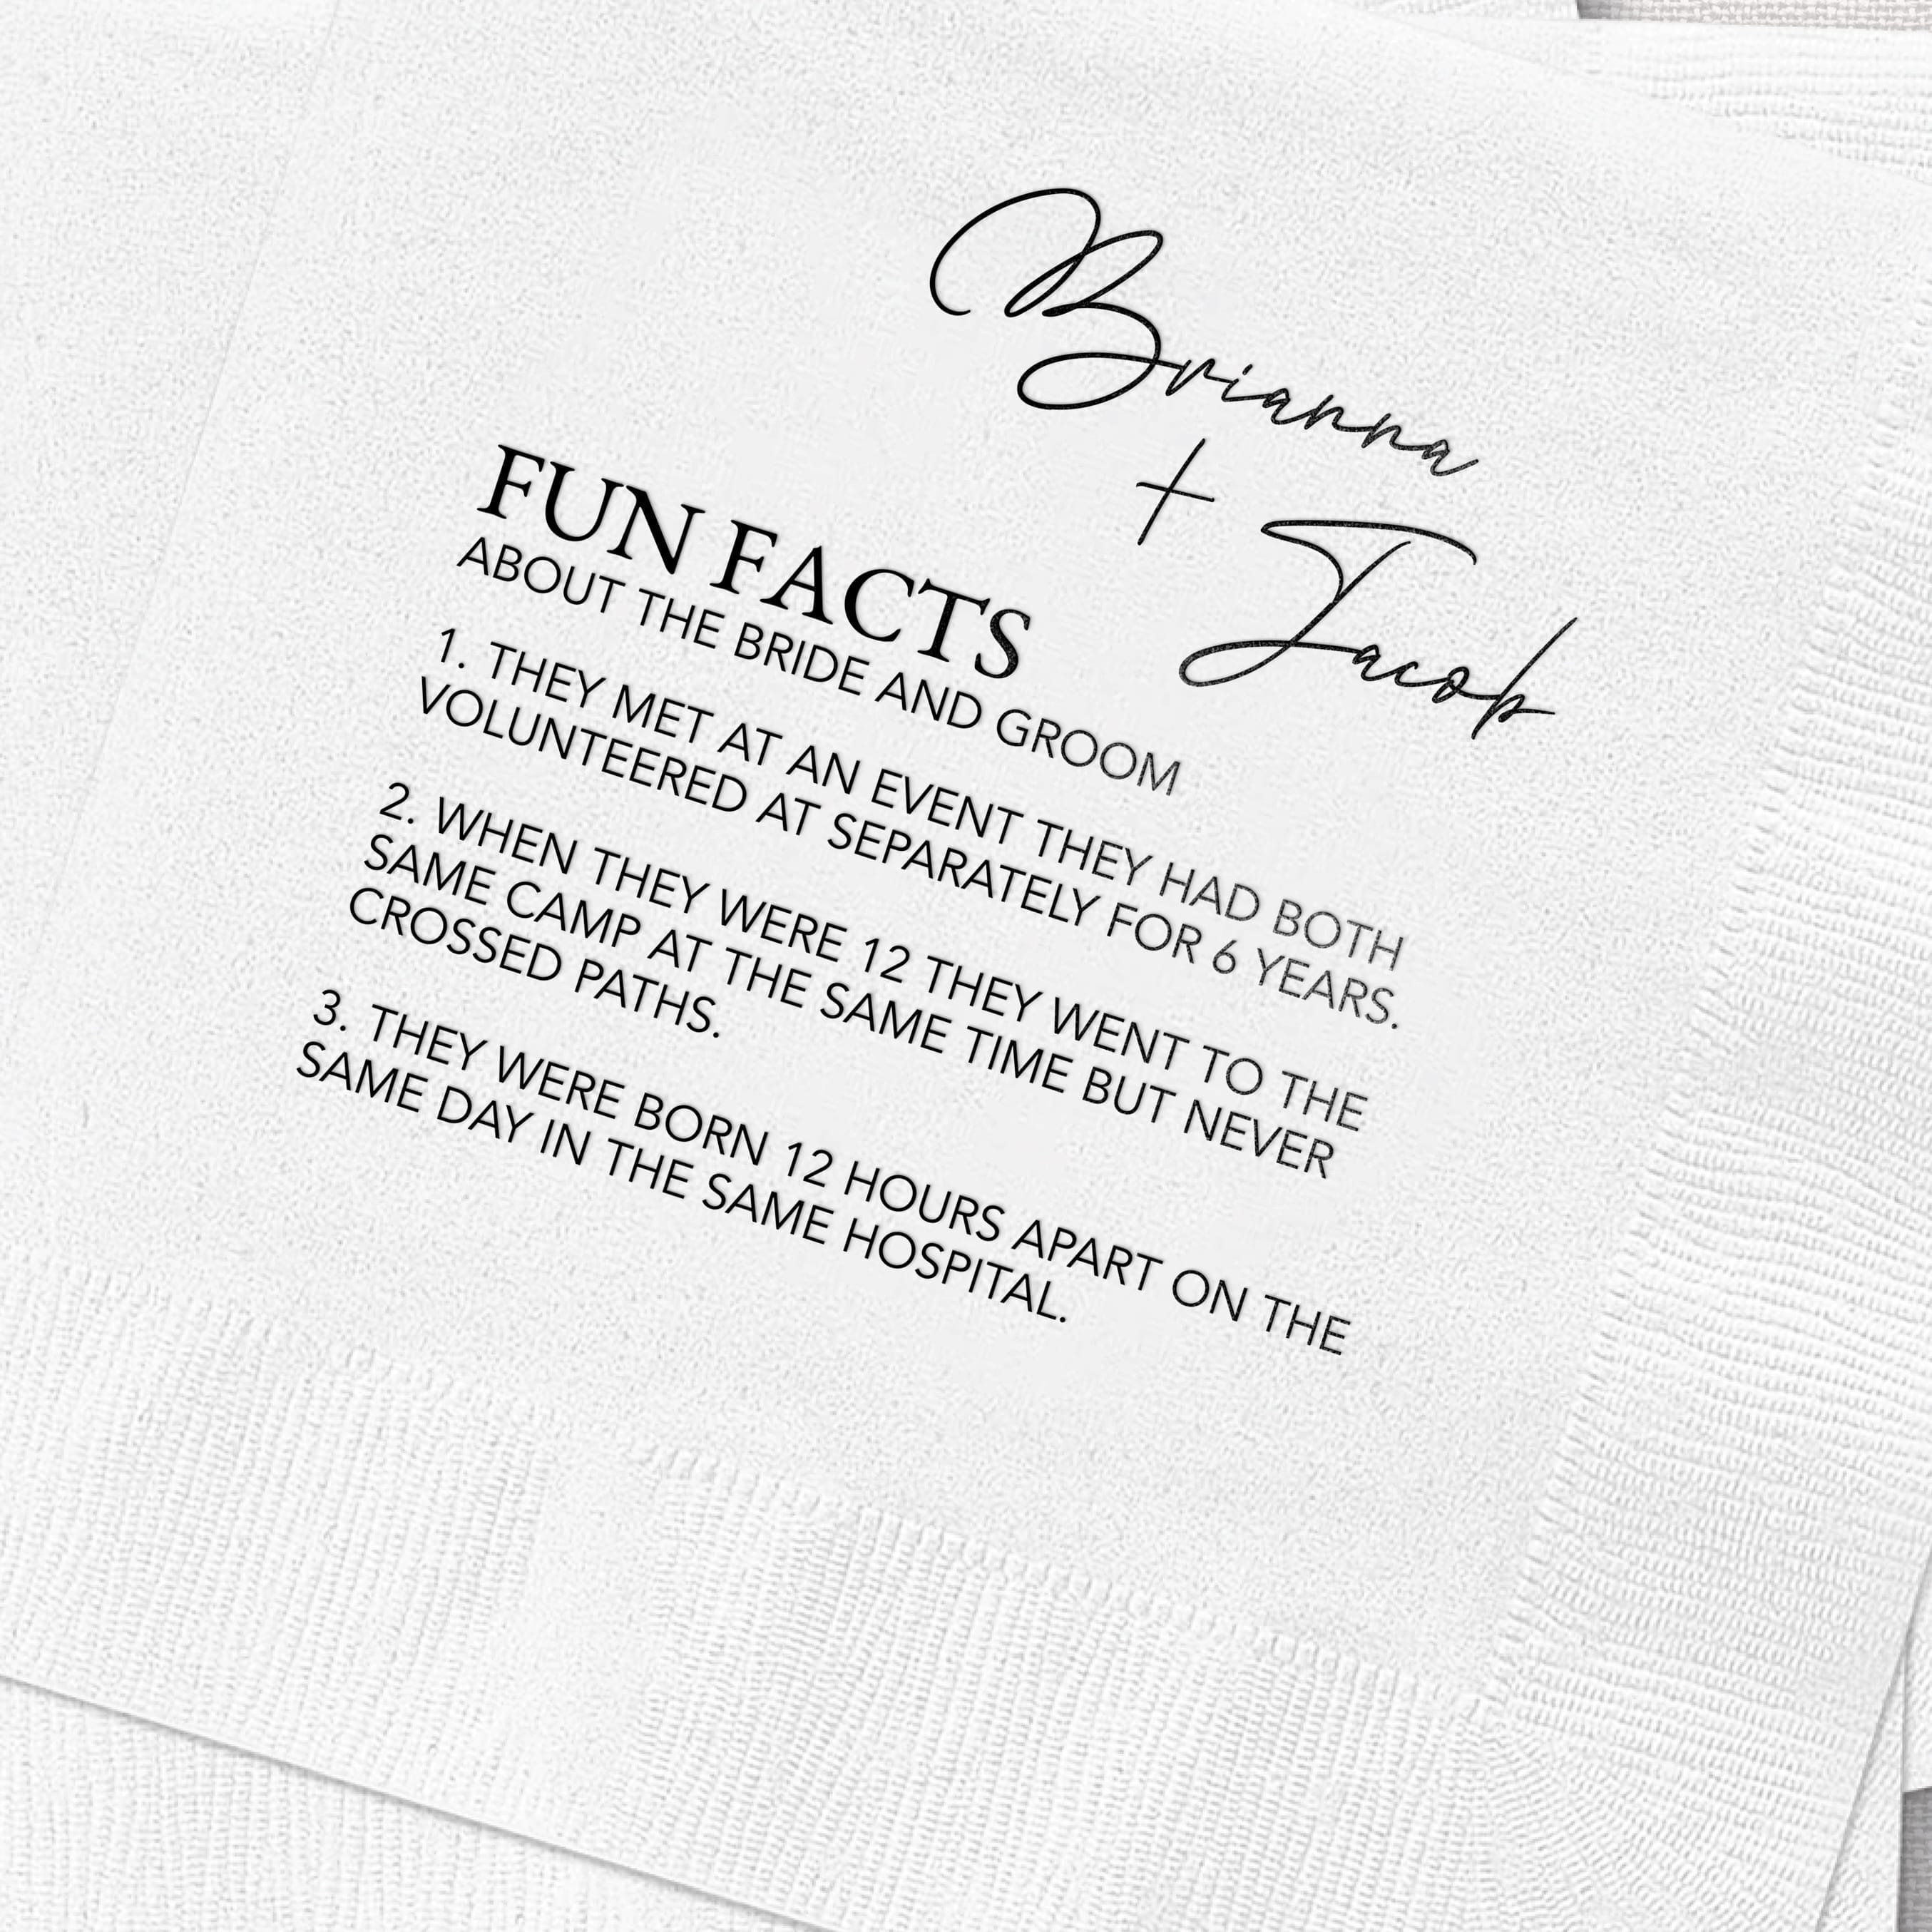 Brianna
+ Jacob
FUN FACTS
ABOUT THE BRIDE AND GROOM
1. THEY MET AT AN EVENT THEY HAD BOTH
VOLUNTEERED AT SEPARATELY FOR 6 YEARS.
2. WHEN THEY WERE 12 THEY WENT TO THE
SAME CAMP AT THE SAME TIME BUT NEVER
CROSSED PATHS.
3. THEY WERE BORN 12 HOURS APART ON THE
SAME DAY IN THE SAME HOSPITAL.